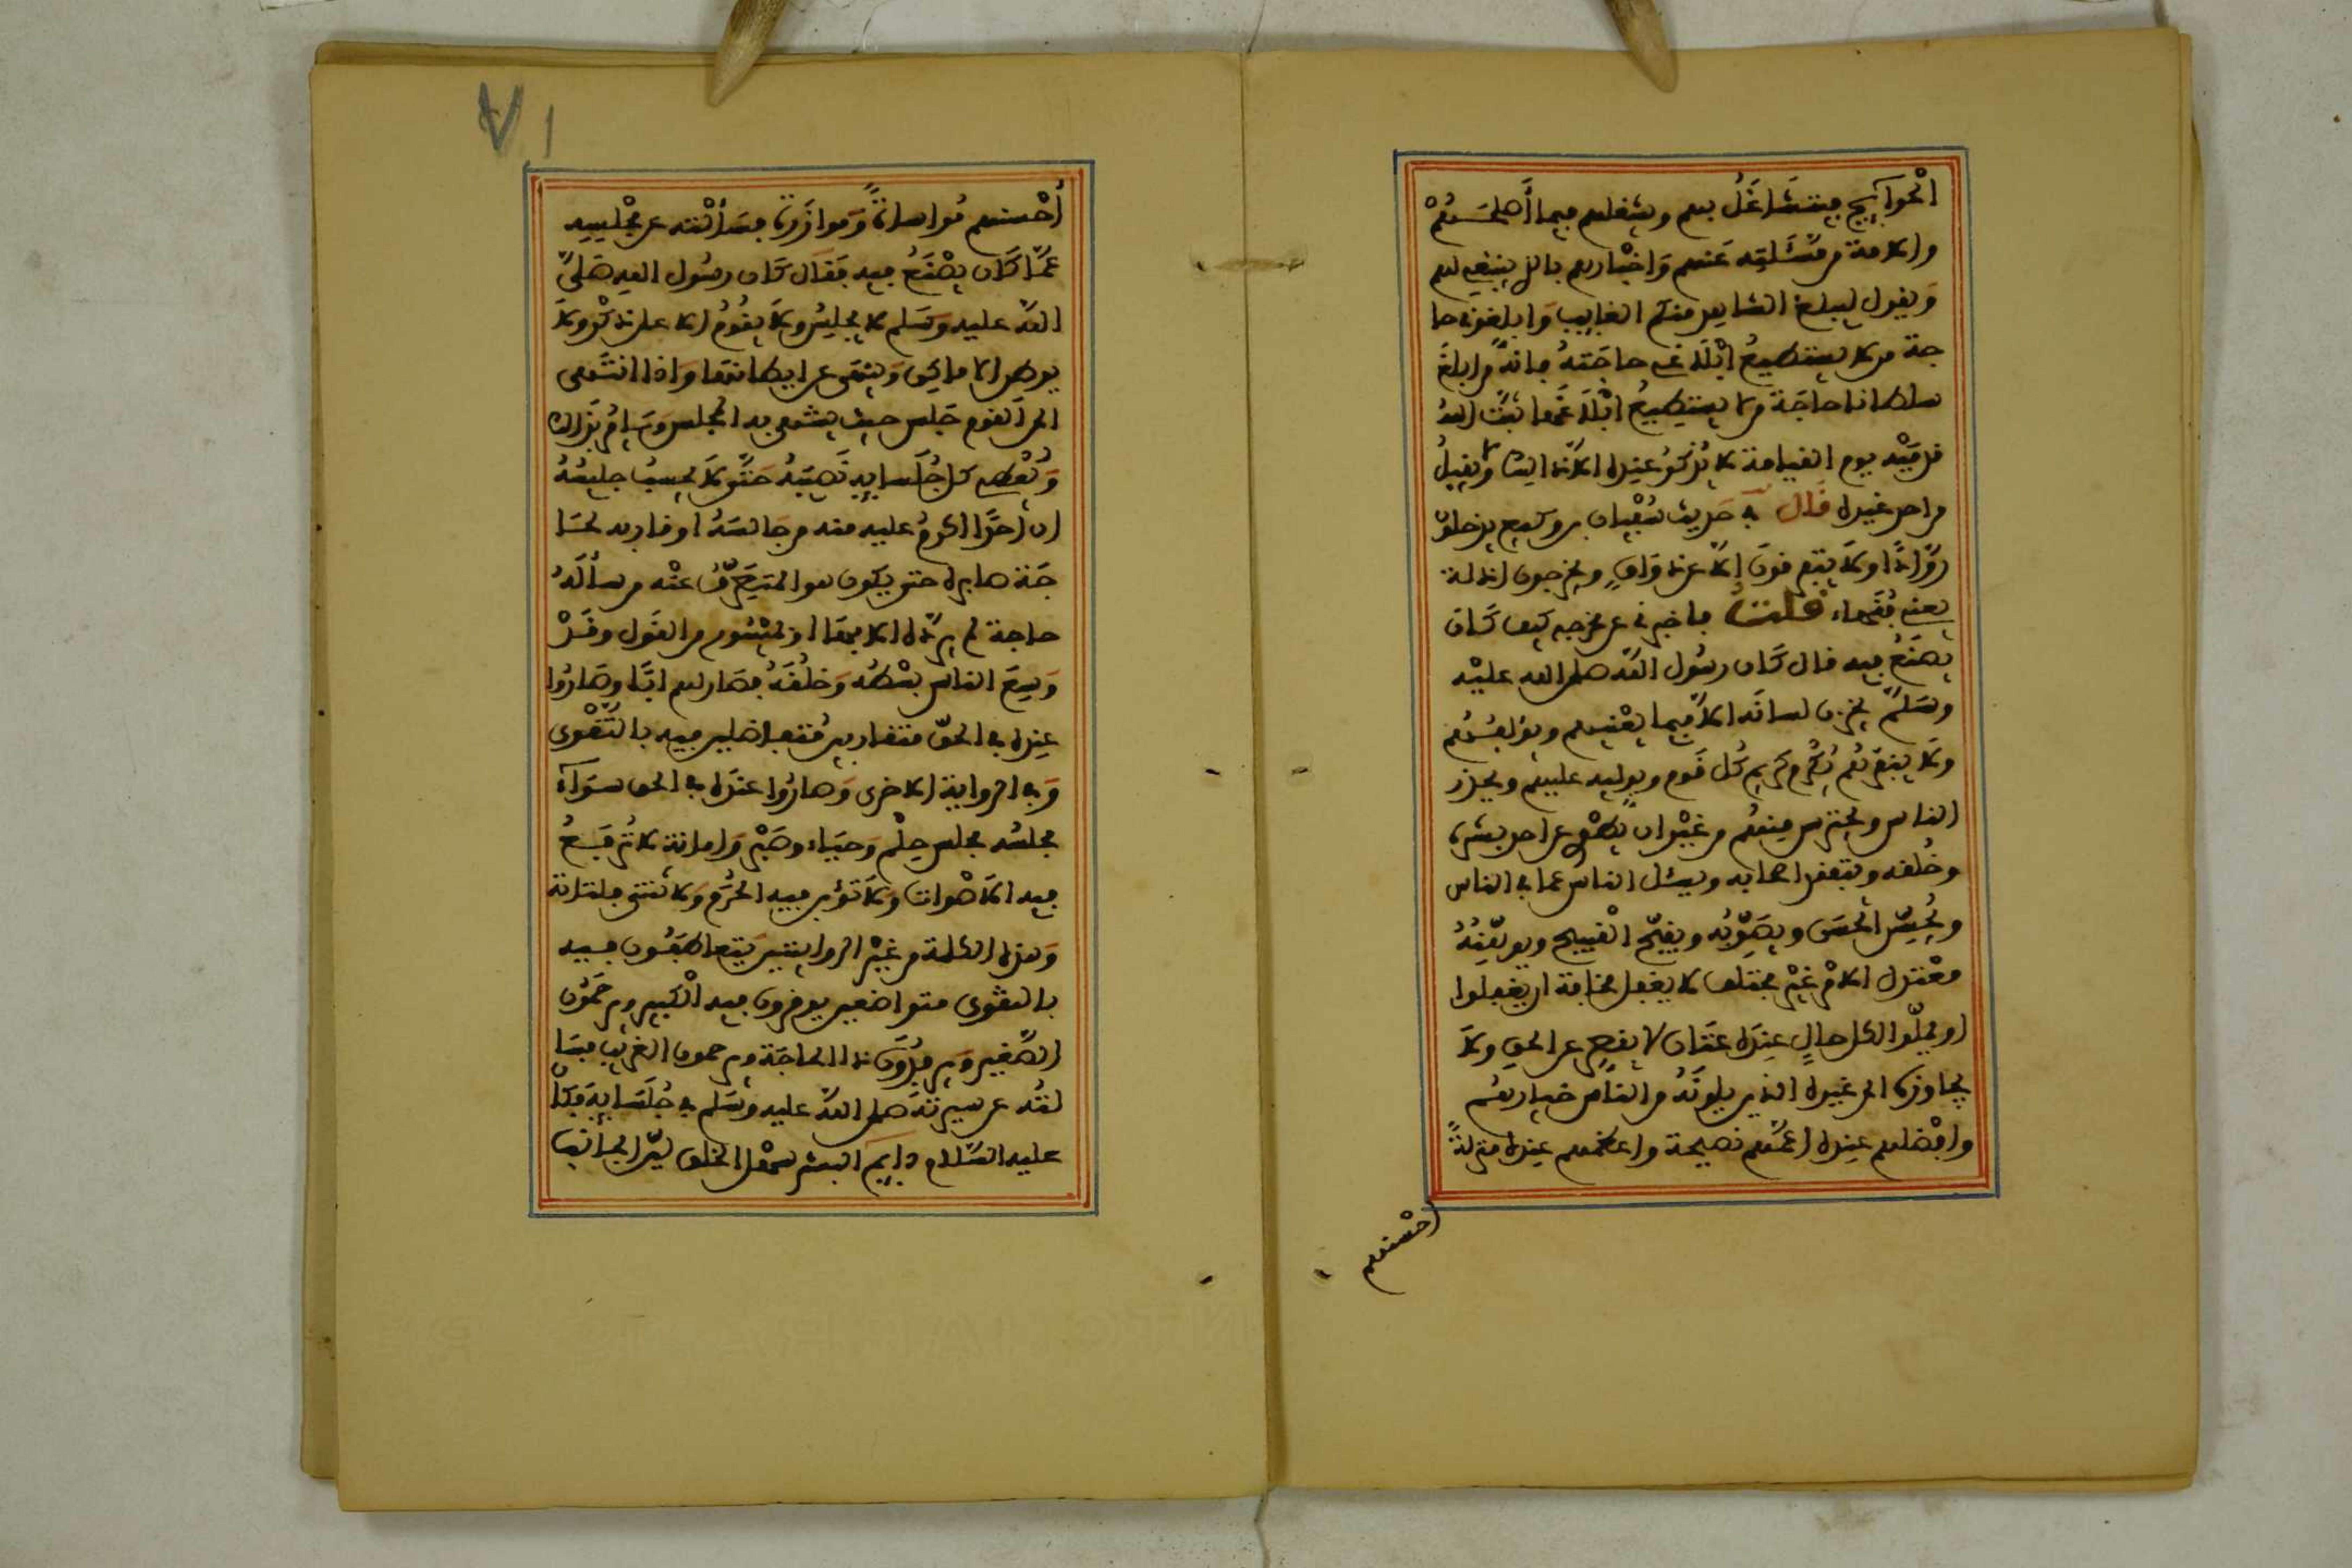 الْحَوَآيِجِ فيتَشَاغَلُ بهم ويشغلهم فيما أَصْلَحَهُمْ
والامة من مَّسْئَلَتِه عَنهم وَإخْبارهم بالذي ينبغي لهم
وَيقول ليبلغ الشاهد منكم الغايِبَ وَابلغوني حا
جة من لا يستطيعُ إبْلَاغي حاجَتهُ فانهُ من ابلغَ
سلطانا حاجَة من لا يستطيعُ ابْلَاغَها ثبَّتَ اللهُ
قدمَيْه يوم القيامة لا يُذكرُ عنده الاَّ ذالك ولا يقبلُ
من احد غيره قال في حَديث سُفْيان بن وكيع يدخلون
رُوَّادًا ولاَ يتفرقونَ إلاَّ عن ذوَاقٍ ويخرجون ادلة
يعني فُقَهاء قلت فاخبرني عن مخرجه كيف كَان
يصنعُ فيه قال كَان رسُول اللَّه صلى الله عليْه
وسَلّمَ يخزن لسانَه الاَّ فيما يعْنيهم ويؤلفهُم
ولاَ يفرّقهُم يُكْرم كَريم كُل قَوم ويوليه عليهم ويحذر
الناس ويحترس منهُم من غيْر ان يطْوِي عن احد بشره
وخُلقه ويتفقد اصحابه ويسئل الناس عما في الناس
ويُحسِّن الْحسَن ويصَوِّبُه ويقبِّح القبيح ويوهِّنهُ
معْتدل الامْر غيْر مختلف لا يغفل مخافة ان يغفلوا
او يملّوا لكل حالٍ عندَه عَتَاد لا يقصر عن الحق ولاَ
يجاوزه الى غيره الذين يلونَهُ من الناس خيارهُم
وافْضلهم عنده اعمّهم نصيحة واعظمهم عنده منزلةً
احسنهم
٧١
أحْسنهم مُواساةً وَموازَرةً فسَألْته عن مجْلسِه
عَمَّا كَان يصْنَعُ فيه فقال كَان رسُول اللهِ صَلىَّ
اللهُ عليه وسَلم لا يجلِسُ ولاَ يقُومُ الا على ذكْر ولاَ
يوطن الاماكِن وَينهَى عن ايطانها وَاذا انتَهى
الى القوم جَلس حيث ينتهي به المجلس وَيامُر بذالك
وَيُعْطي كل جُلَسايِهِ نَصيبَهُ حَتَّى لاَ يحسِبُ جليسُهُ
ان أحَدًا اكرمُ عليه منه من جَالسَهُ او قاربه لحَا
جَة صابره حتى يكون هو المنصَرفُ عنْه من سألَهُ
حاجة لم يردَّه الا بها او بمَيْسُور من القَول وقَدْ
وَسِعَ الناس بسْطهُ وَخلُقهُ فصَار لهم ابًا وصَارُوا
عنده في الحقّ متقاربين مُتفاضلين فيه بالتَّقْوى
وَفي الرواية الاخرى وَصارُوا عندَه في الحق سوَآءً
مجلسُه مجلس حِلْم وَحيَاء وصَبْر وَامانة لا تُرفَعُ
فيه الاَصْوات ولاَ تؤبن فيه الحُرَم وَلا تُنثى فلتاته
وَهذه الكلمة من غيْر الروايتين يَتعاطفُون فيه
بالتقوى متواضعين يوقرون فيه الْكبير ويرحمُون
الصَّغير ويرفِدُون ذا الحاجَة ويرحمون الغريب فسَا
لتُه عن سيرته صلى الله عليه وسَلم في جُلَسَايِه فقال
عليه السَّلام دايم البشر سهْل الخلق ليّن الجانب